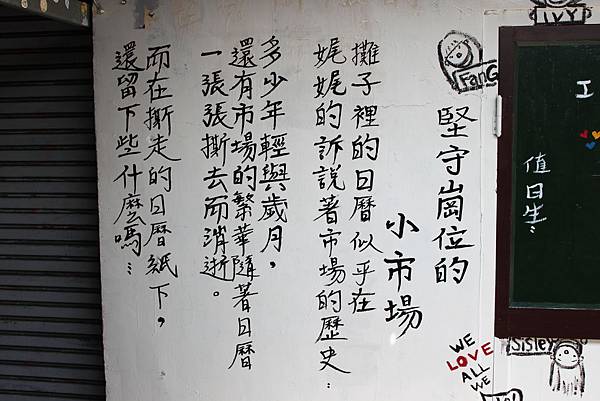 堅守崗位的
小市場
攤子裡的日曆似乎在
娓娓的訴說著市場的歷史…
多少年輕與歲月，
還有市場的繁華隨著日曆
一張張撕去而消逝。
而在撕走的日曆紙下，
還留下些什麼嗎…
IVY
FanG
工
值日生：
Sisley
WE
LOVE
ALL
WE